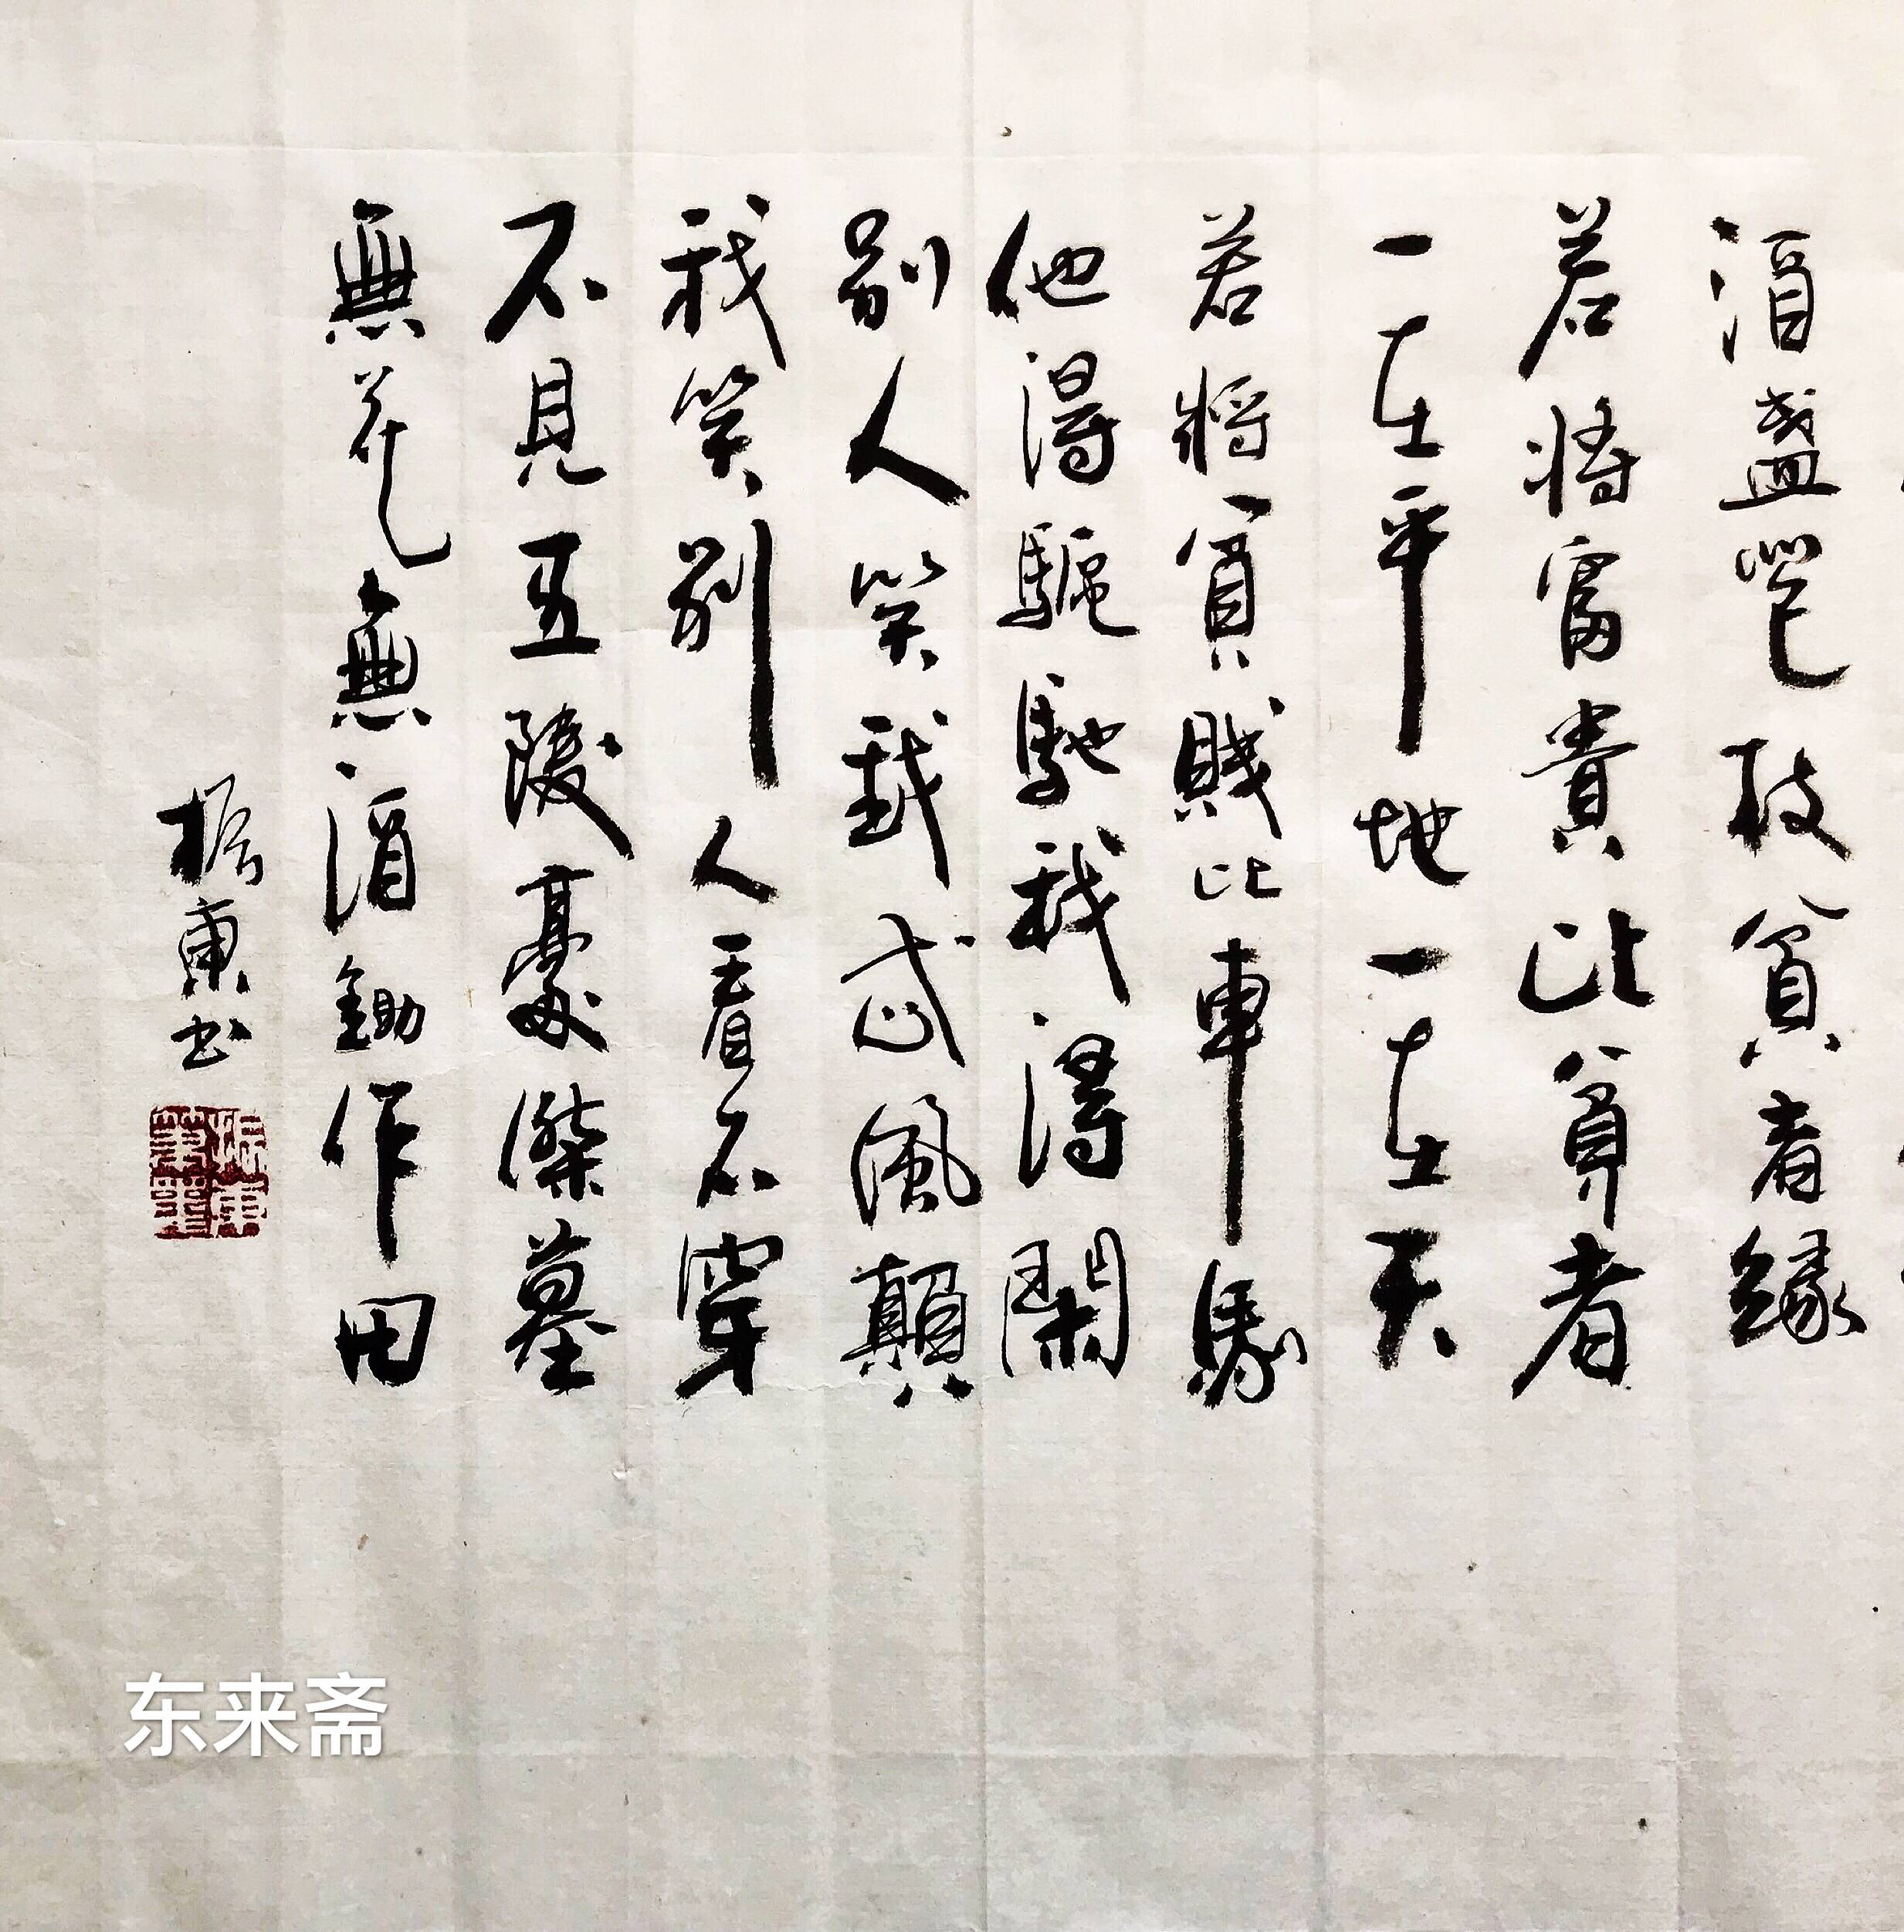 酒盞花枝貧者緣
若將富貴比貧者
一在平地一在天
若將貧賤比車馬
他得驅馳我得閑
別人笑我忒風顛
我笑別人看不穿
不見五陵豪傑墓
無花無酒鋤作田
振東书
东来斋